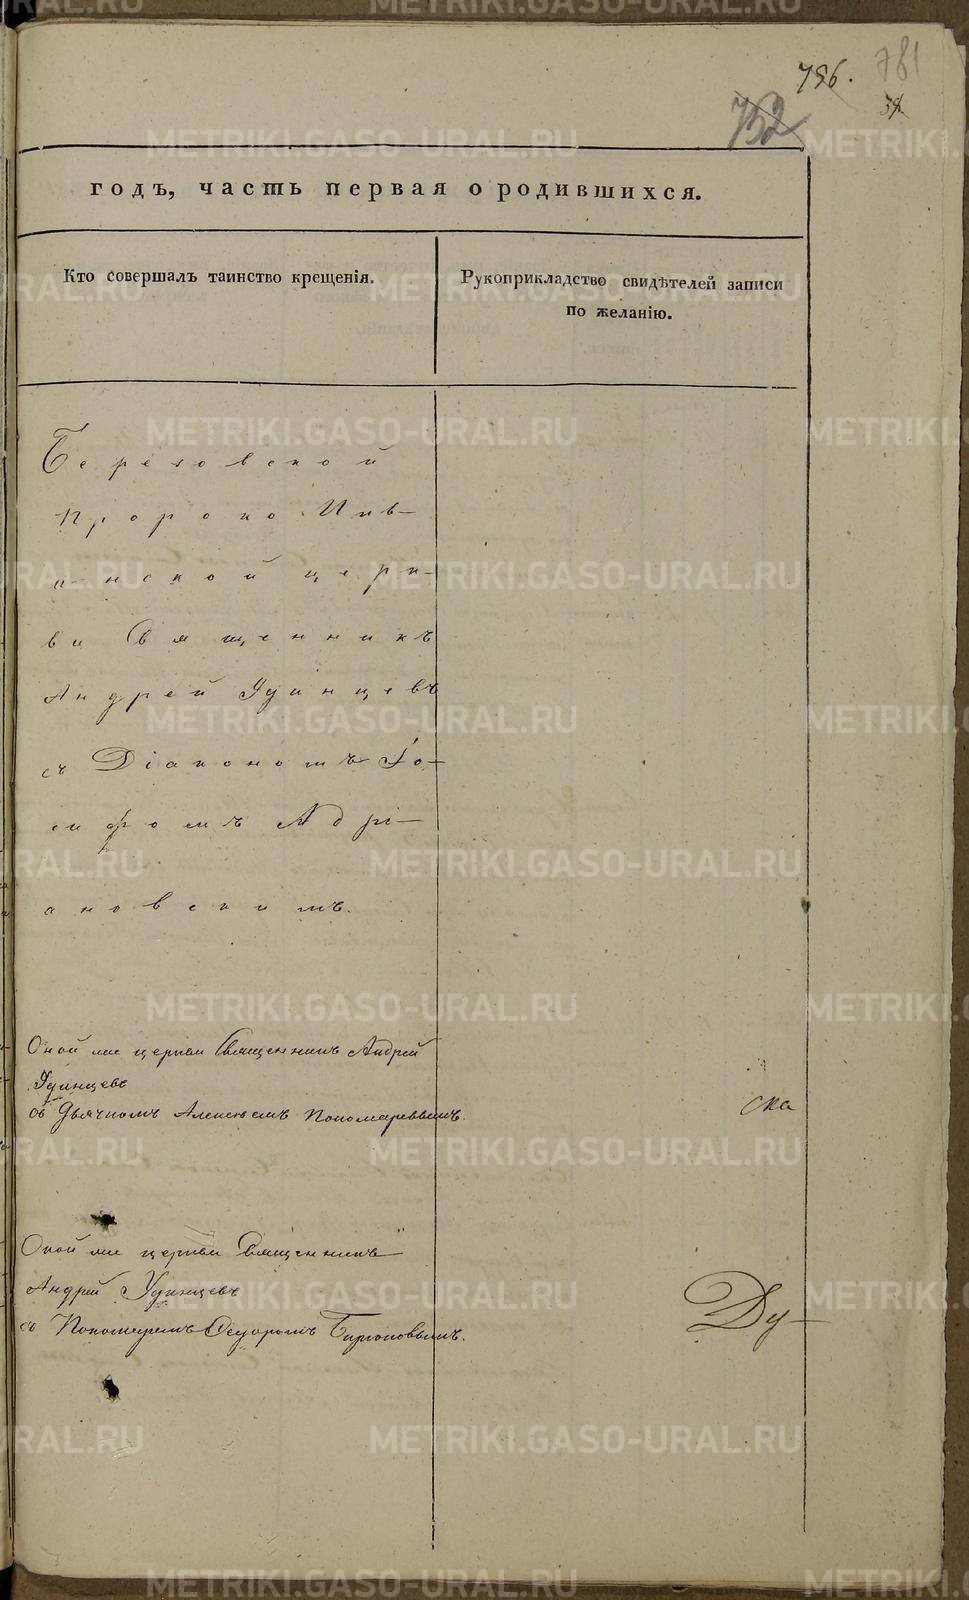 786.
781
752
годъ, часть первая о родившихся.
Кто совершалъ таинство крещенія.
Рукоприкладство свидѣтелей записи
по желанію.
Березовской
Пророко Иль-
инской церк-
ви Священникъ
Андрей Удинцевъ
съ Діакономъ Іо-
сифомъ Адрі-
ановскимъ.
Оной же церкви Священникъ Андрей
Удинцевъ
съ Дьячкомъ Алексѣемъ Пономаревымъ.
ска
Оной же церкви Священникъ
Андрей Удинцевъ
съ Пономаремъ Ѳедоромъ
Ду-
METRIKI.GASO-URAL.RU